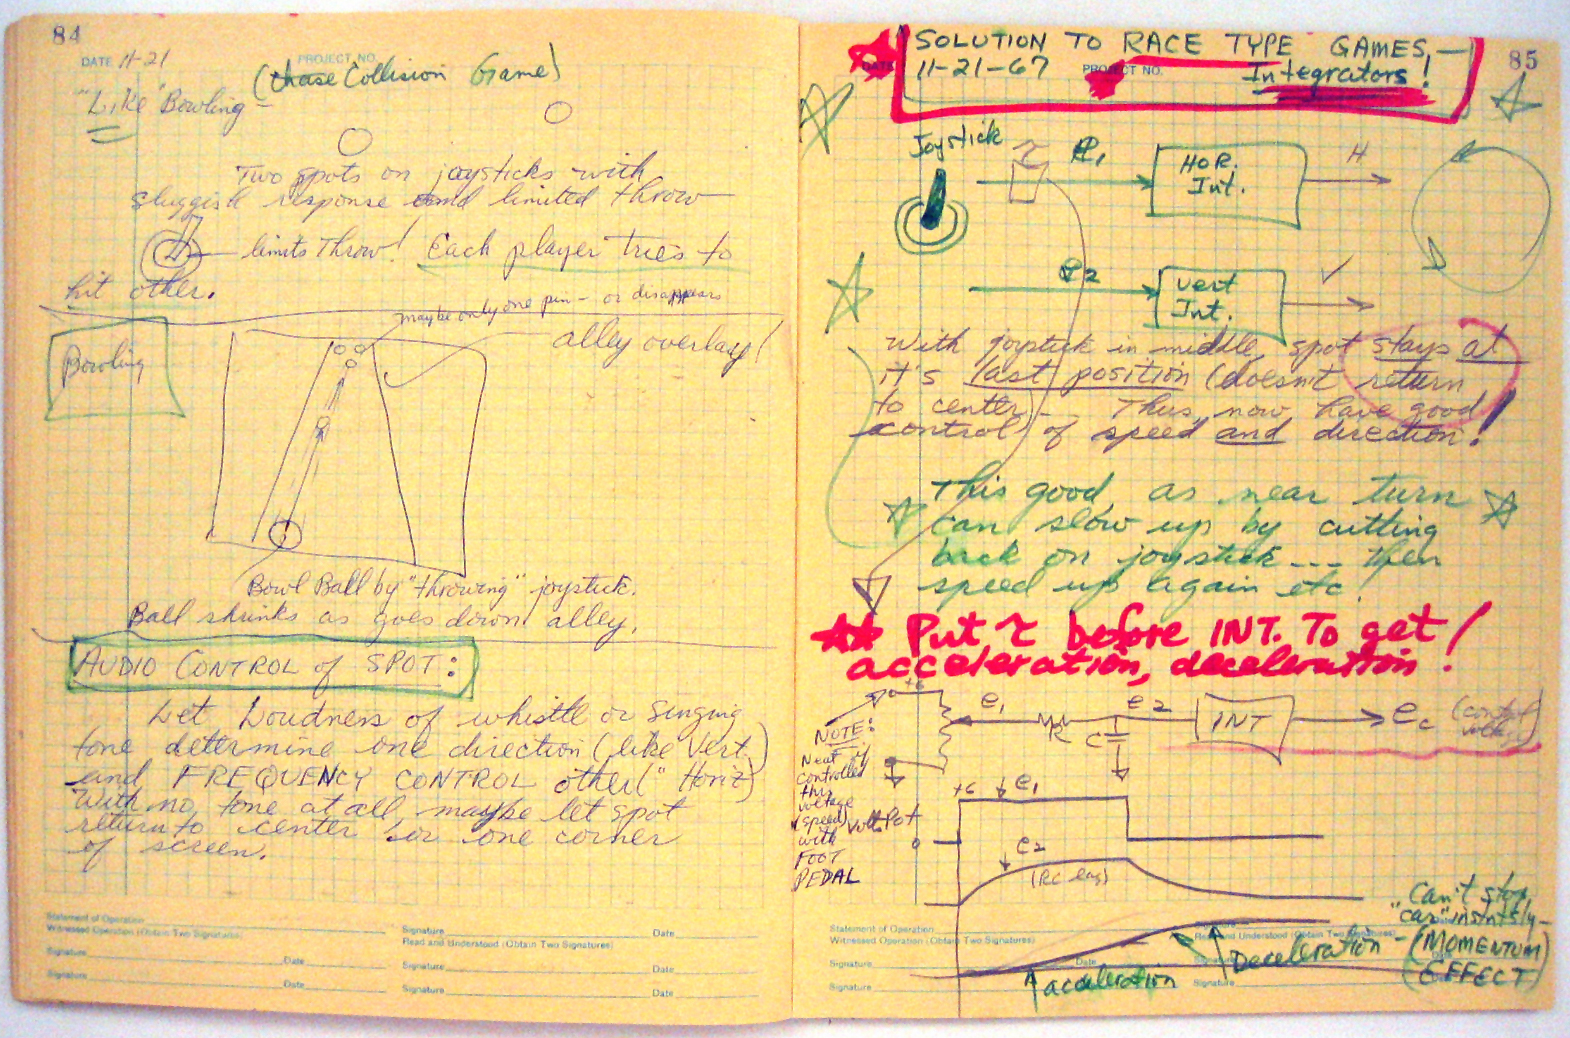 84
DATE 11-21
PROJECT NO.
(Chase Collision Game)
"Like" Bowling -
Two spots on joysticks with
sluggish response and limited throw
limits Throw! Each player tries to
hit other.
maybe only one pin - or disappears
Bowling
alley overlay!
Bowl Ball by "throwing" joystick.
Ball shrinks as goes down alley.
AUDIO CONTROL of SPOT:
Let Loudness of whistle or Singing
tone determine one direction (like Vert.)
and FREQUENCY CONTROL other (" Horiz)
With no tone at all, maybe let spot
return to center or one corner
of screen.
Statement of Operation
Witnessed Operation (Obtain Two Signatures)
Signature Date
Read and Understood (Obtain Two Signatures)
Signature Date
Signature Date
Signature Date
Signature Date
85
DATE
PROJECT NO.
SOLUTION TO RACE TYPE GAMES, -
11-21-67
Integrators!
Joystick
τ
e1
HOR.
Int.
H
e2
Vert
Int.
V
With joystick in middle, spot stays at
it's last position (doesn't return
to center) - Thus, now have good
control of speed and direction!
This good, as near turn
can slow up by cutting
back on joystick --- then
speed up again etc.
Put τ before INT. To get
acceleration, deceleration!
+6
e1
R
e2
C
INT
ec (control
voltage)
NOTE:
Neat if
controlled
this
voltage
(speed)
with
FOOT
PEDAL
Volt Pot
+6
e1
0
e2
(RC lag)
acceleration
Deceleration -
"Can't stop
"car" instntly -
(MOMENTUM
EFFECT)
Statement of Operation
Witnessed Operation (Obtain Two Signatures)
Signature Date
Read and Understood (Obtain Two Signatures)
Signature
Signature